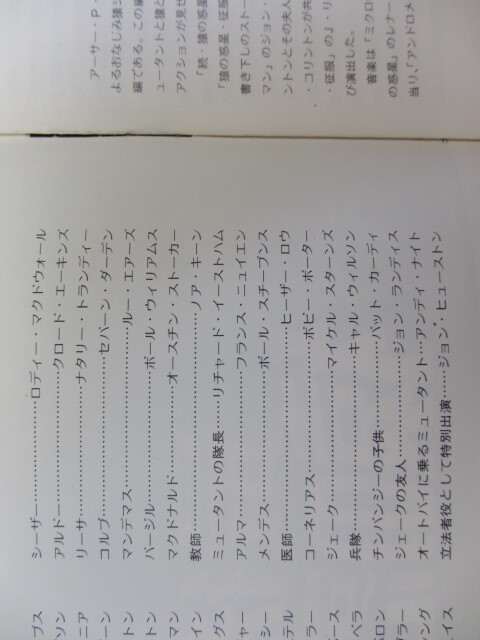 ブス
ソン
ニア
ーン
トン
トン
マン
イン
グス
ャー
シー
テル
ラー
ース
ベラ
ロン
ラー
ング
イス
シーザー……………………ロディー・マクドウォール
アルドー……………………クロード・エーキンズ
リーサ………………………ナタリー・トランディー
コルプ………………………セバーン・ダーデン
マンデマス…………………ルー・エアーズ
バージル……………………ポール・ウィリアムス
マクドナルド………………オースチン・ストーカー
教師…………………………ノア・キーン
ミュータントの隊長………リチャード・イーストハム
アルマ………………………フランス・ニュイエン
メンデス……………………ポール・スチーブンス
医師…………………………ヒーザー・ロウ
コーネリアス………………ボビー・ポーター
ジェーク……………………マイケル・スターンズ
兵隊…………………………キャル・ウィルソン
チンパンジーの子供………パット・カーディ
ジェークの友人……………ジョン・ランディス
オートバイに乗るミュータント…アンディ・ナイト
立法者役として特別出演……ジョン・ヒューストン
アーサー・P・
よるおなじみ猿シ
編である。この編
ュータントと猿と
アクションが見せ
『続・猿の惑星
『猿の惑星・征服
書き下しのストー
マン』のジョン・
ントンとその夫人
・コリントンが共
・征服』の J・リ
び演出した。
音楽は『ミクロ
の惑星』のレナー
当り、『アンドロメ